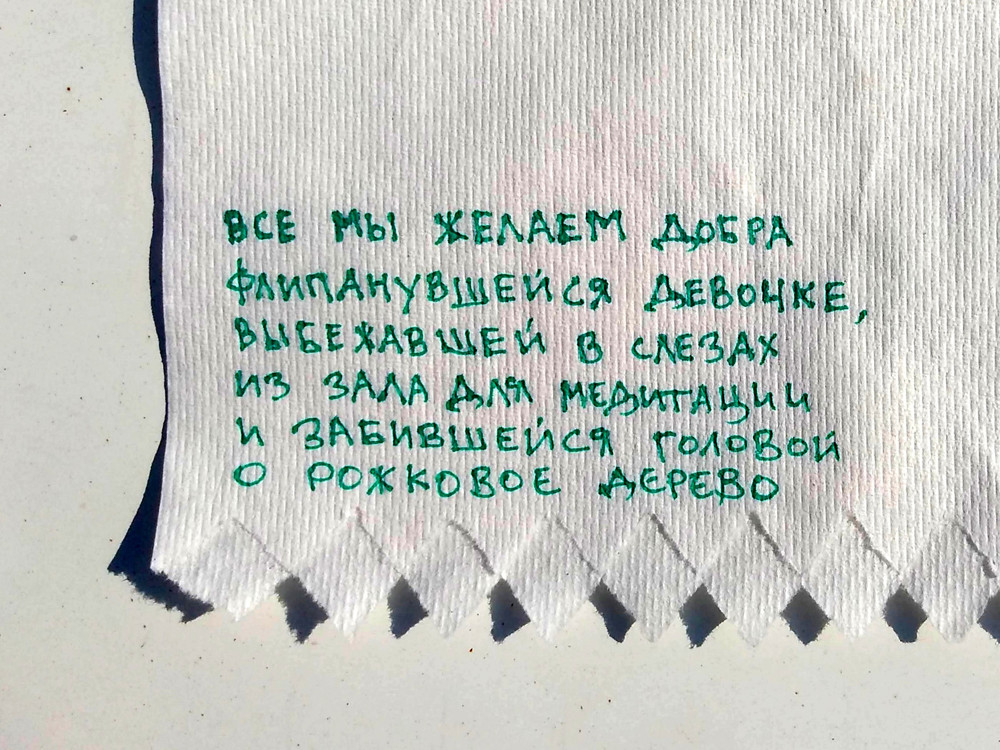 ВСЕ МЫ ЖЕЛАЕМ ДОБРА
ФЛИПАНУВШЕЙСЯ ДЕВОЧКЕ,
ВЫБЕЖАВШЕЙ В СЛЕЗАХ
ИЗ ЗАЛА ДЛЯ МЕДИТАЦИИ
И ЗАБИВШЕЙСЯ ГОЛОВОЙ
О РОЖКОВОЕ ДЕРЕВО